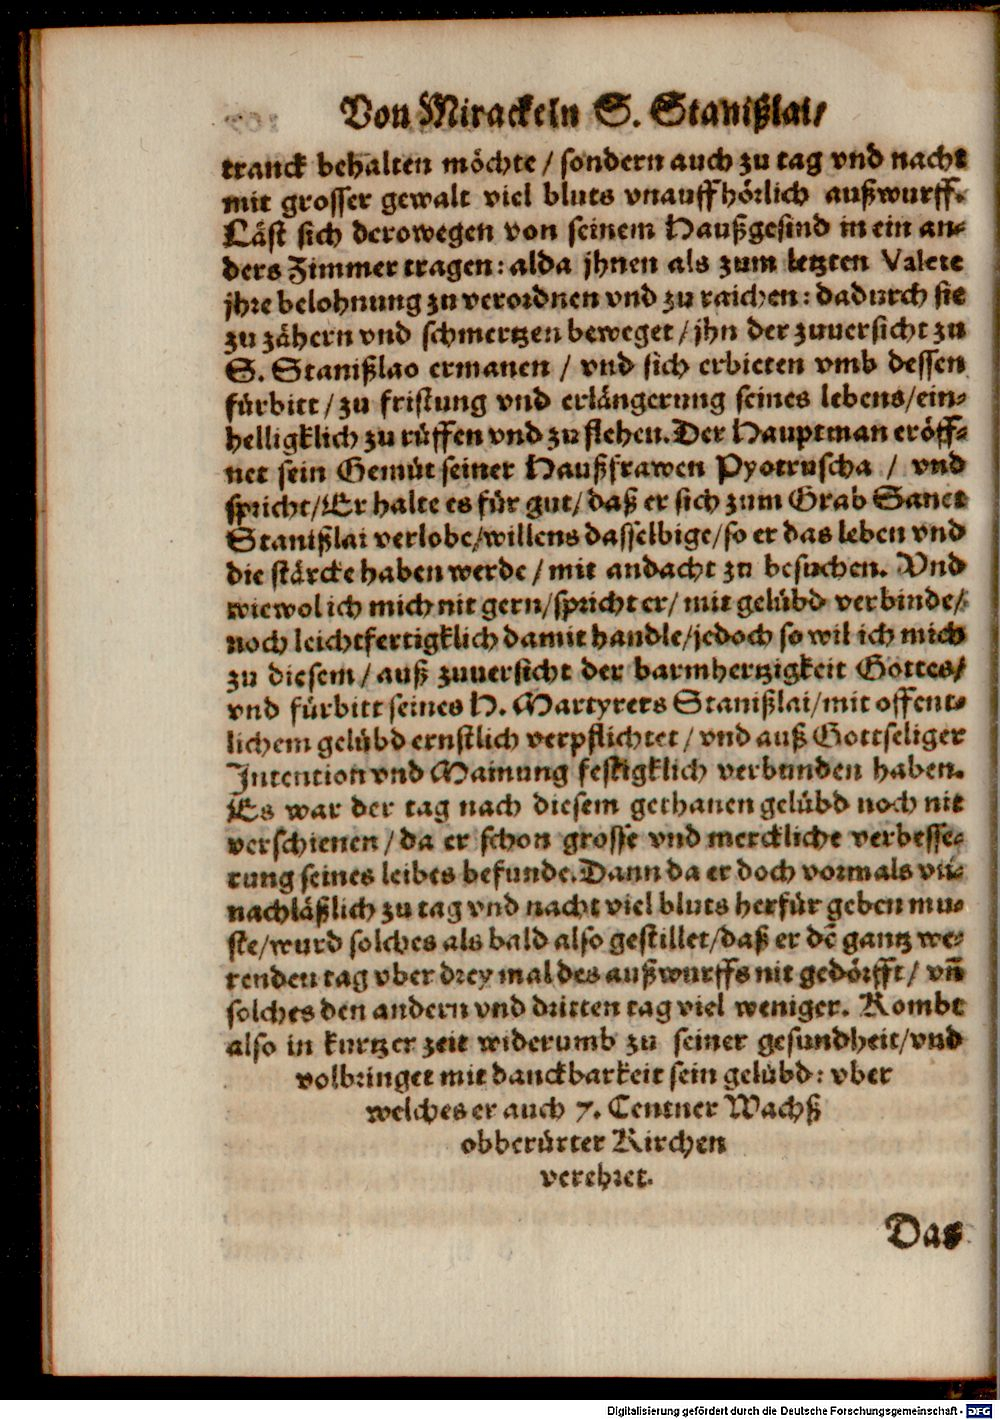 Von Mirackeln S. Stanißlai/
tranck behalten möchte / sondern auch zu tag vnd nacht
mit grosser gewalt viel bluts vnauffhörlich außwurff.
Läst sich derowegen von seinem Haußgesind in ein an-
ders Zimmer tragen: alda jhnen als zum letzten Valete
jhre belohnung zu verordnen vnd zu raichen: dadurch sie
zu zähern vnd schmertzen beweget / jhn der zuuersicht zu
S. Stanißlao ermanen / vnd sich erbieten vmb dessen
fürbitt / zu fristung vnd erlängerung seines lebens/ein-
helligklich zu rüffen vnd zu flehen. Der Hauptman eröff-
net sein Gemüt seiner Haußfrawen Pyotruscha / vnd
spricht/Er halte es für gut/ daß er sich zum Grab Sanct
Stanißlai verlobe/willens dasselbige/so er das leben vnd
die stärcke haben werde / mit andacht zu besuchen. Vnd
wiewol ich mich nit gern/spricht er/ mit gelübd verbinde/
noch leichtfertigklich damit handle/jedoch so wil ich mich
zu diesem / auß zuuersicht der barmhertzigkeit Gottes/
vnd fürbitt seines H. Martyrers Stanißlai/mit offent-
lichem gelübd ernstlich verpflichtet / vnd auß Gottseliger
Intention vnd Mainung festigklich verbunden haben.
Es war der tag nach diesem gethanen gelübd noch nit
verschienen / da er schon grosse vnd merckliche verbesse-
rung seines leibes befunde. Dann da er doch vormals vn-
nachläßlich zu tag vnd nacht viel bluts herfür geben mu-
ste/wurd solches als bald also gestillet/daß er dē gantz we-
renden tag vber drey mal des außwurffs nit gedörfft / vn̄
solches den andern vnd dritten tag viel weniger. Kombt
also in kurtzer zeit widerumb zu seiner gesundheit/vnd
volbringet mit danckbarkeit sein gelübd: vber
welches er auch 7. Centner Wachß
obberürter Kirchen
verehret.
Das
Digitalisierung gefördert durch die Deutsche Forschungsgemeinschaft - DFG